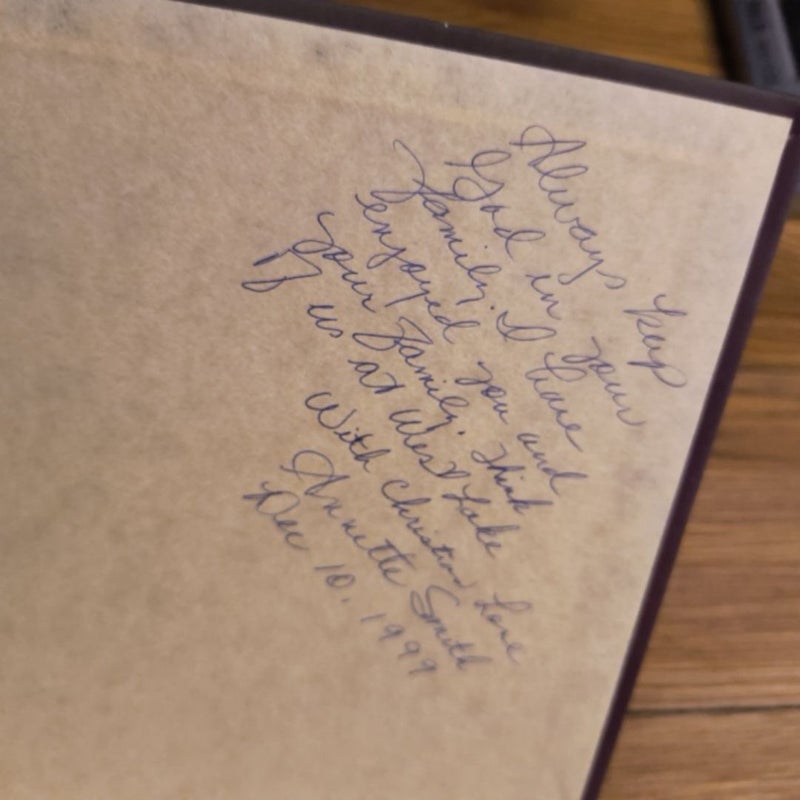 Always keep
God in your
family. I have
enjoyed you and
your family. Think
of us at West Lake
With Christian Love
Annette Smith
Dec 10, 1999